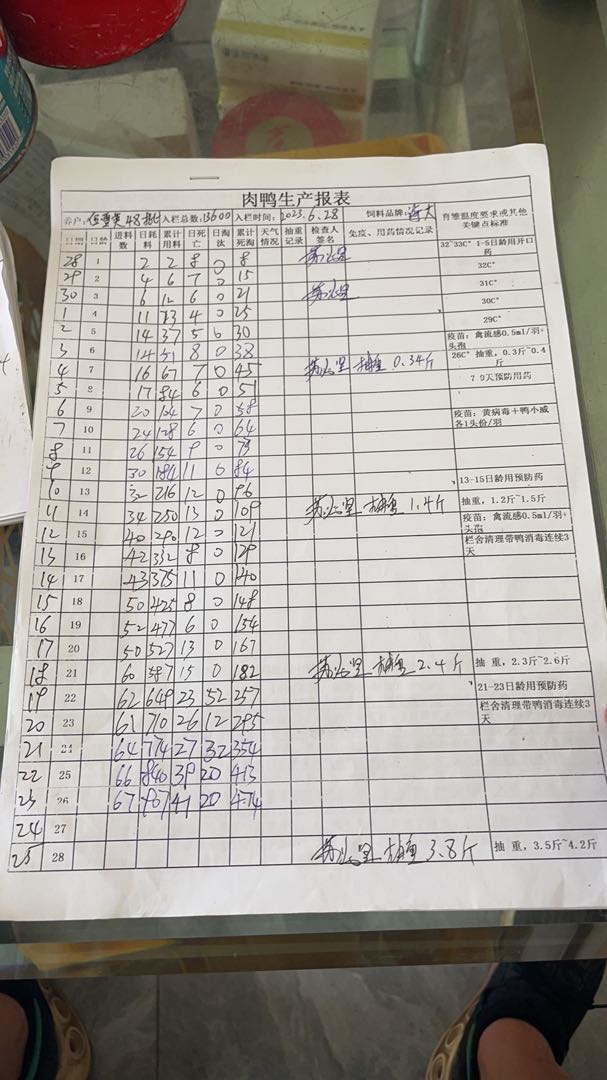 肉鸭生产报表
养户: 48批 入栏总数: 13600 入栏时间: 2023.6.28 饲料品牌: 海大 育雏温度要求或其他关键点标准
日期 日龄 进料数 日耗料 累计用料 日死亡 日淘汰 累计死淘 天气情况 抽重记录 检查人签名 免疫、用药情况记录
28 1 2 2 8 0 8 32~33C° 1-5日龄用开口药
29 2 4 6 7 0 15 32C°
30 3 6 12 6 0 21 31C°
1 4 11 23 4 0 25 30C°
2 5 14 37 5 0 30 29C°
3 6 14 51 8 0 38 疫苗：禽流感0.5ml/羽+头孢
4 7 16 67 7 0 45 抽重 0.34斤 26C° 抽重，0.3斤~0.4斤
5 8 17 84 6 0 51 7-9天预防用药
6 9 20 104 7 0 58
7 10 24 128 6 0 64 疫苗：黄病毒+鸭小威各1头份/羽
8 11 26 154 9 0 73
9 12 30 184 11 0 84
10 13 32 216 12 0 96 13-15日龄用预防药
11 14 34 250 13 0 109 抽重 1.4斤 抽重，1.2斤~1.5斤
12 15 40 290 12 0 121 疫苗：禽流感0.5ml/羽+头孢
13 16 42 332 8 0 129 栏舍清理带鸭消毒连续3天
14 17 43 375 11 0 140
15 18 50 425 8 0 148
16 19 52 477 6 0 154
17 20 50 527 13 0 167
18 21 60 587 15 0 182 抽重 2.4斤 抽 重，2.3斤~2.6斤
19 22 62 649 23 52 257 21-23日龄用预防药
20 23 61 710 26 12 295 栏舍清理带鸭消毒连续3天
21 24 64 774 27 32 354
22 25 66 840 39 20 413
23 26 67 907 41 20 474
24 27
25 28 抽重 3.8斤 抽 重，3.5斤~4.2斤